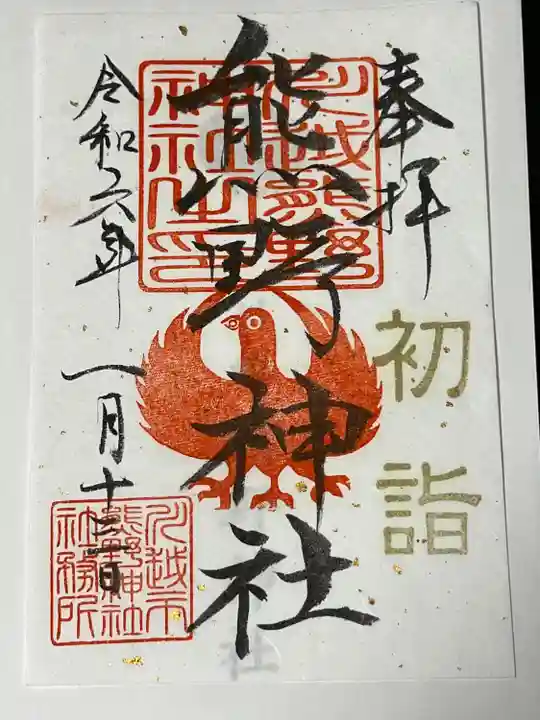 奉拝
初詣
川越熊野
神社之印
熊野神社
令和六年
一月十三日
川越市
熊野神社
社務所